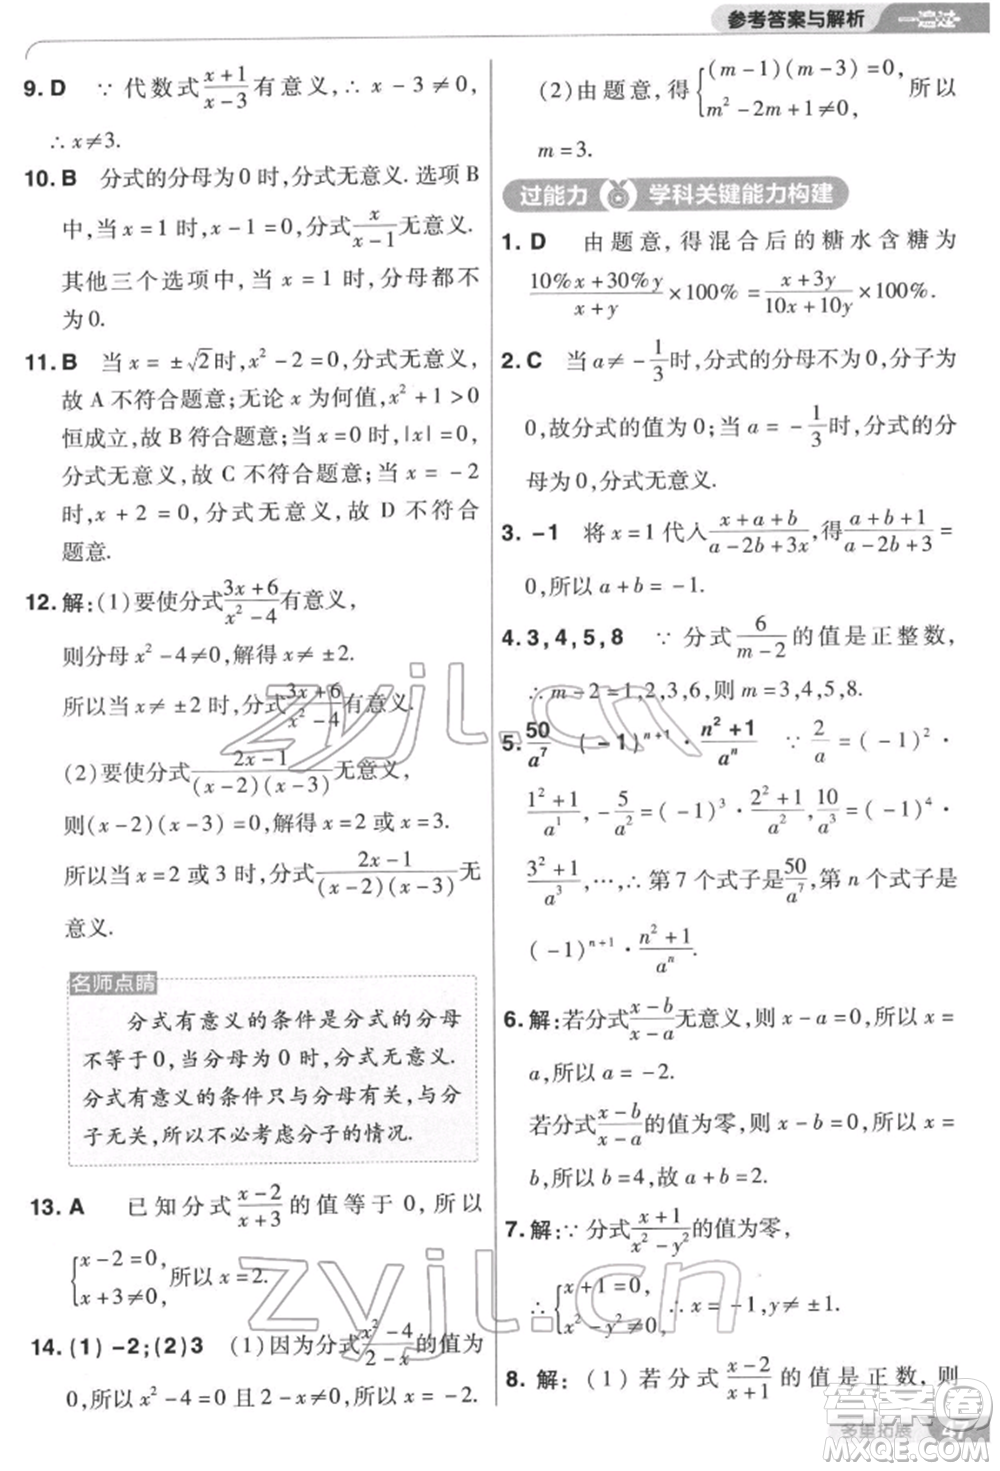 参考答案与解析 一遍过
9. D ∵ 代数式(x+1)/(x-3)有意义,∴ x-3≠0,
∴ x≠3.
10. B 分式的分母为0时,分式无意义. 选项B
中,当x=1时,x-1=0,分式x/(x-1)无意义.
其他三个选项中,当x=1时,分母都不
为0.
11. B 当x=±√2时,x²-2=0,分式无意义,
故A不符合题意;无论x为何值,x²+1>0
恒成立,故B符合题意;当x=0时,|x|=0,
分式无意义,故C不符合题意;当x=-2
时,x+2=0,分式无意义,故D不符合
题意.
12. 解:(1)要使分式(3x+6)/(x²-4)有意义,
则分母x²-4≠0,解得x≠±2.
所以当x≠±2时,分式(3x+6)/(x²-4)有意义.
(2)要使分式(2x-1)/((x-2)(x-3))无意义,
则(x-2)(x-3)=0,解得x=2或x=3.
所以当x=2或3时,分式(2x-1)/((x-2)(x-3))无
意义.
名师点睛
分式有意义的条件是分式的分母
不等于0,当分母为0时,分式无意义.
分式有意义的条件只与分母有关,与分
子无关,所以不必考虑分子的情况.
13. A 已知分式(x-2)/(x+3)的值等于0,所以
{x-2=0, x+3≠0, 所以x=2.
14. (1)-2;(2)3 (1)因为分式(x²-4)/(2-x)的值为
0,所以x²-4=0且2-x≠0,所以x=-2.
(2)由题意,得{(m-1)(m-3)=0, m²-2m+1≠0, 所以
m=3.
过能力 学科关键能力构建
1. D 由题意,得混合后的糖水含糖为
(10%x+30%y)/(x+y)×100%=(x+3y)/(10x+10y)×100%.
2. C 当a≠-1/3时,分式的分母不为0,分子为
0,故分式的值为0;当a=-1/3时,分式的分
母为0,分式无意义.
3. -1 将x=1代入(x+a+b)/(a-2b+3x),得(a+b+1)/(a-2b+3)=
0,所以a+b=-1.
4. 3,4,5,8 ∵ 分式6/(m-2)的值是正整数,
∴ m-2=1,2,3,6,所以m=3,4,5,8.
5. 50/a⁷ (-1)ⁿ⁺¹·(n²+1)/aⁿ ∵ 2/a=(-1)²·
(1²+1)/a¹,-5/a²=(-1)³·(2²+1)/a²,10/a³=(-1)⁴·
(3²+1)/a³,…,∴ 第7个式子是50/a⁷,第n个式子是
(-1)ⁿ⁺¹·(n²+1)/aⁿ.
6. 解:若分式(x-b)/(x-a)无意义,则x-a=0,所以x=
a,所以a=-2.
若分式(x-b)/(x-a)的值为零,则x-b=0,所以x=
b,所以b=4,故a+b=2.
7. 解:∵ 分式(x+1)/(x²-y²)的值为零,
∴ {x+1=0, x²-y²≠0, ∴ x=-1,y≠±1.
8. 解:(1)若分式(x-2)/(x+1)的值是正数,则
多重拓展 47
zyjl.cn
zyjl.cn
答案卷
MXQE.COM